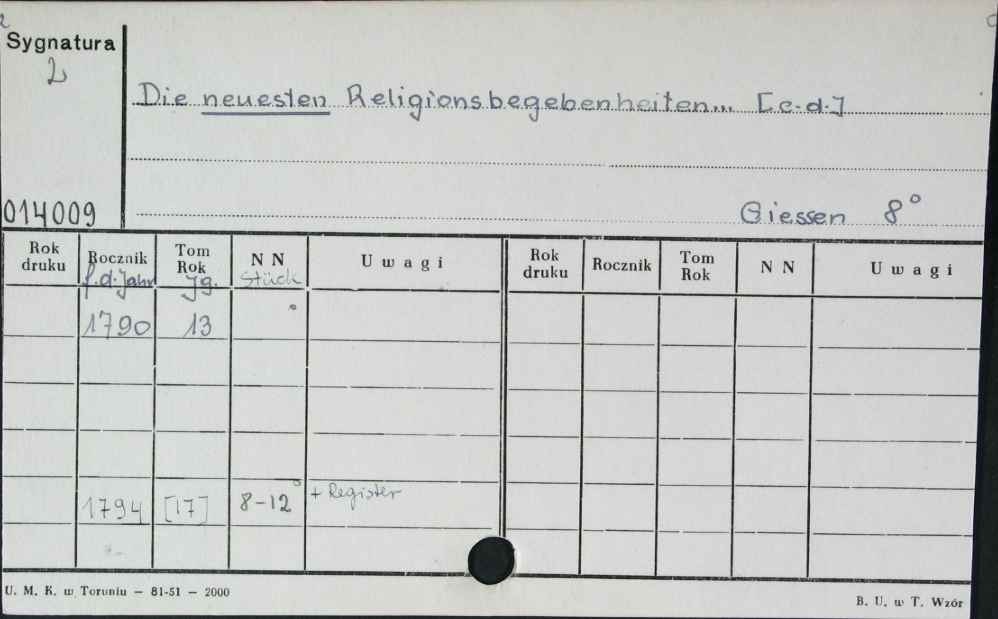 Sygnatura
2
Die neuesten Religionsbegebenheiten... [c.d.]
014009
Giessen 8°
Rok druku Rocznik Tom Rok N N Uwagi Rok druku Rocznik Tom Rok N N Uwagi
f. d. Jahr Jg. Stück
1790 13
1794 [17] 8-12 + Register
U. M. K. w Toruniu — 81-51 — 2000
B. U. w T. Wzór